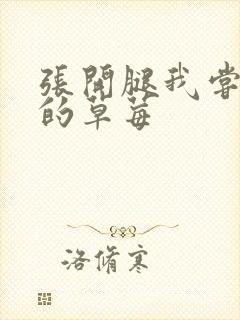 張開腿我嘗
的草莓
洛脩寒